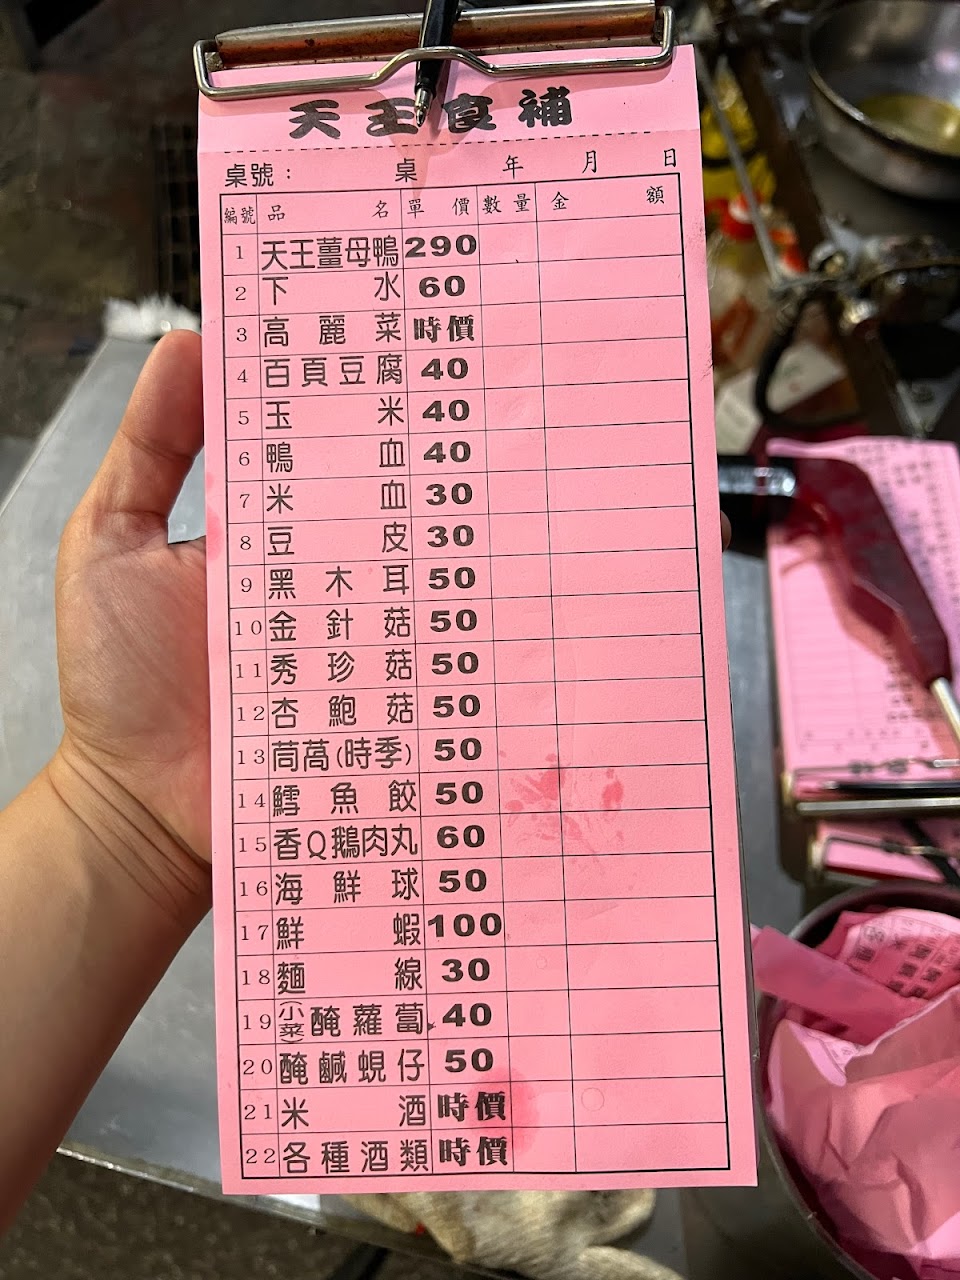 天王食補
桌號： 桌 年 月 日
編號 品名 單價 數量 金額
1 天王薑母鴨 290
2 下水 60
3 高麗菜 時價
4 百頁豆腐 40
5 玉米 40
6 鴨血 40
7 米血 30
8 豆皮 30
9 黑木耳 50
10 金針菇 50
11 秀珍菇 50
12 杏鮑菇 50
13 茼萵(時季) 50
14 鱈魚餃 50
15 香Q鵝肉丸 60
16 海鮮球 50
17 鮮蝦 100
18 麵線 30
19 (小菜)醃蘿蔔 40
20 醃鹹蜆仔 50
21 米酒 時價
22 各種酒類 時價